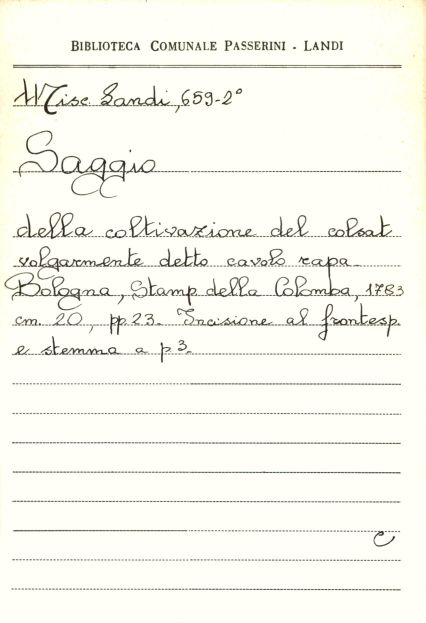 BIBLIOTECA COMUNALE PASSERINI - LANDI
Misc. Landi, 659-2°
Saggio
della coltivazione del colsat
volgarmente detto cavolo rapa -
Bologna, Stamp della Colomba, 1783
cm. 20, pp. 23. Incisione al frontesp.
e stemma a p 3.
C